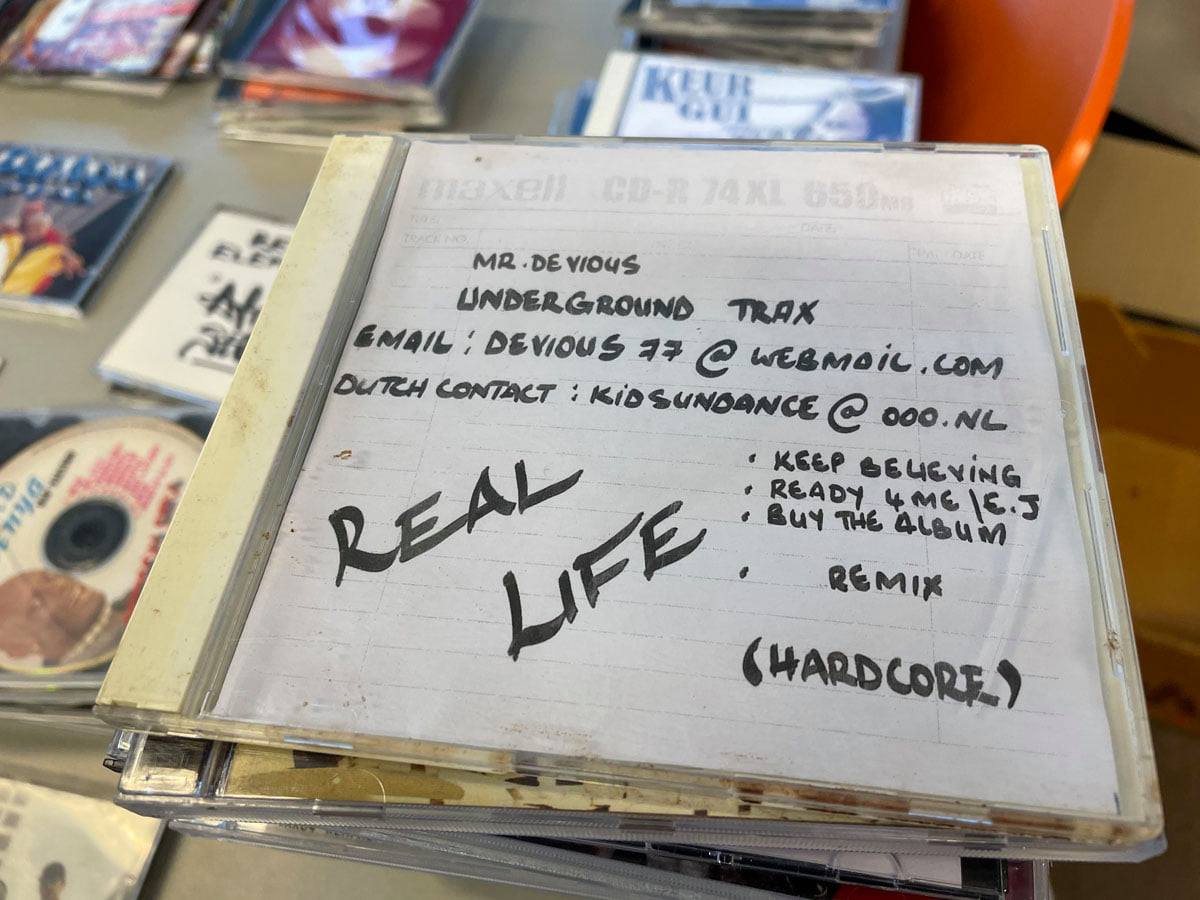 KEUR
GUI
maxell CD-R 74XL 650MB
DATE:
TRACK NO.
MR. DEVIOUS
UNDERGROUND TRAX
EMAIL : DEVIOUS 77 @ WEBMAIL.COM
DUTCH CONTACT : KIDSUNDANCE @ OOO.NL
REAL
LIFE
• KEEP BELIEVING
• READY 4 ME / E.J
• BUY THE ALBUM
• REMIX
(HARDCORE)